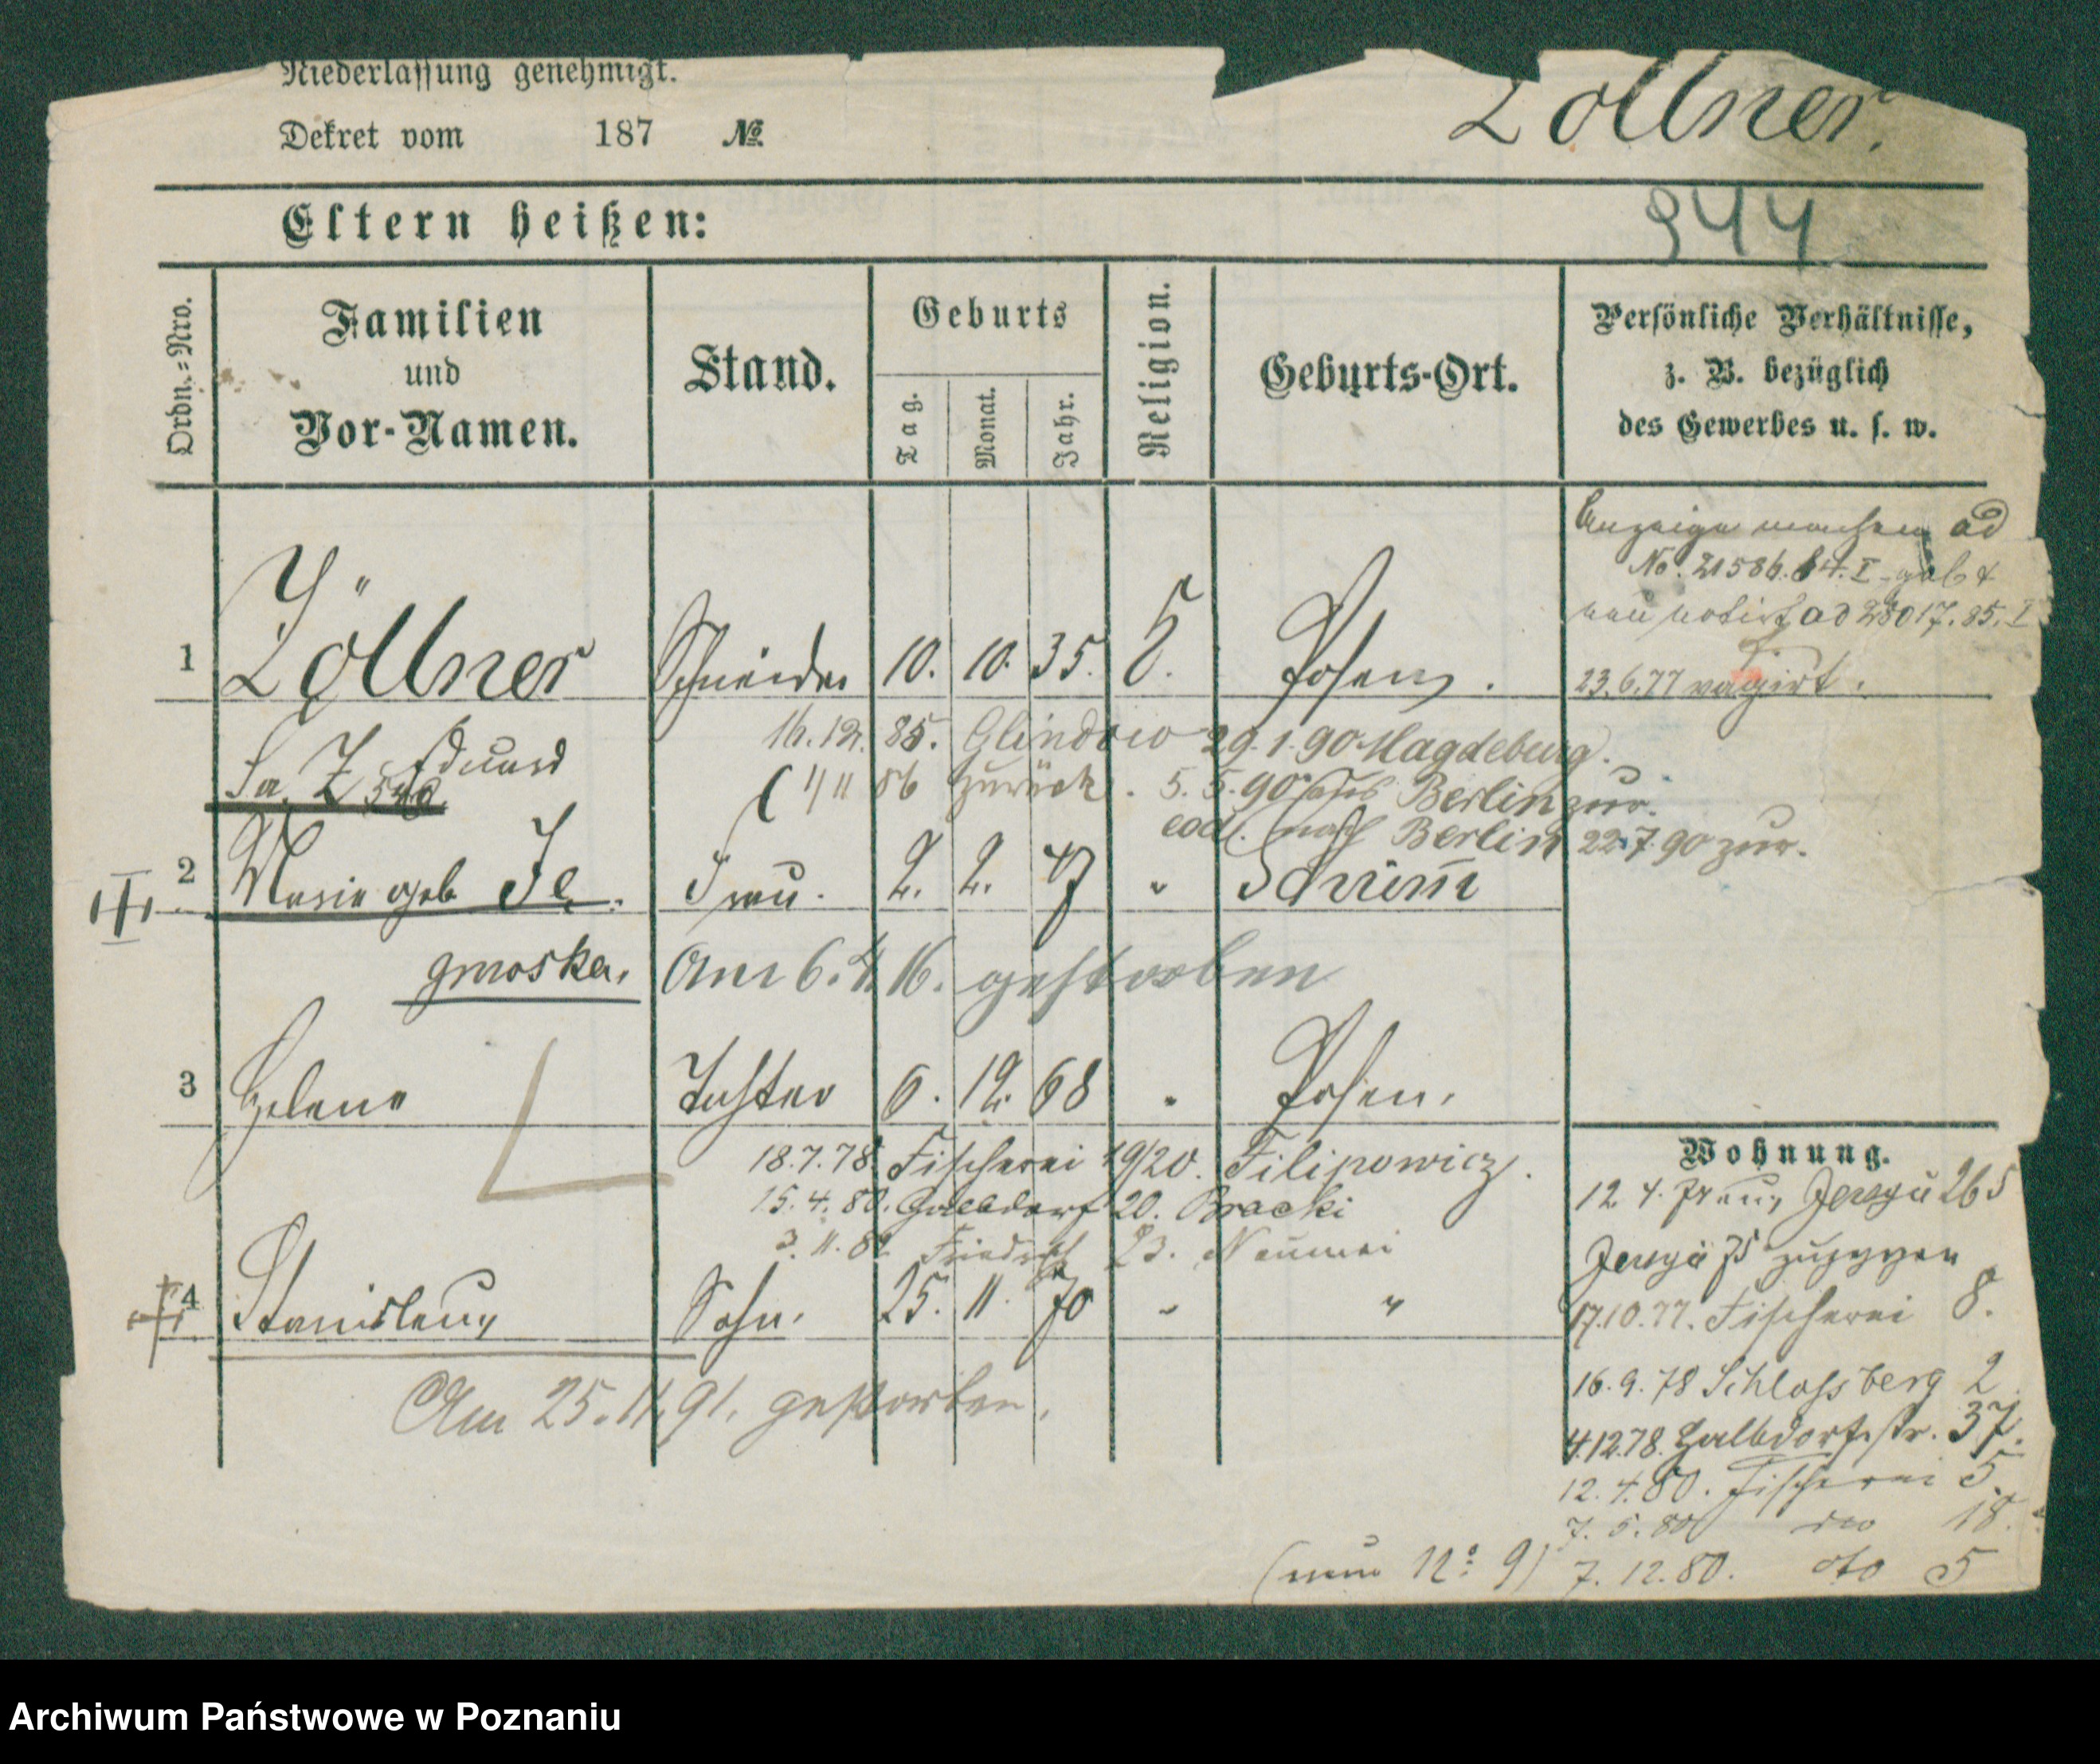 Niederlassung genehmigt.
Dekret vom 187 №
Zöllner.
944
Eltern heißen:
Ordn.-Nro.
Familien
und
Vor-Namen.
Stand.
Geburts
Tag.
Monat.
Jahr.
Religion.
Geburts-Ort.
Persönliche Verhältnisse,
z. B. bezüglich
des Gewerbes u. s. w.
Anzeige machen ad
No. 21586. 84. I
notirt ad 28017. 85. I
1 Zöllner Schneider 10. 10. 35. Posen.
23.6.77 vagirt.
Eduard
16. 12. 85. Glindow 29. 1. 90 Magdeburg.
86 zurück. 5. 5. 90 Berlin zur.
eod. nach Berlin 22.7.90 zur.
2 Marie geb Je- Frau. 2. 2. 47 " Schrimm
gmoska. Am 6. 4 16. gestorben
3 Helene Tochter 6. 12. 68 " Posen.
18.7.78. Fischerei 19/20. Filipowicz.
15. 4. 80. Halbdorf 20. Bracki
3. 11. 82 Friedrich 23.
4 Stanislaus Sohn. 25. 11. 70 " "
Am 25. 11. 91. gestorben.
Wohnung.
12 4. 265
17.10.77. Fischerei 8.
16. 9. 78 Schlossberg 2
4.12.78. Halbdorfstr. 37.
12. 4. 80. Fischerei 5.
7. 5. 80 do 18.
7. 12. 80. dto 5
Archiwum Państwowe w Poznaniu